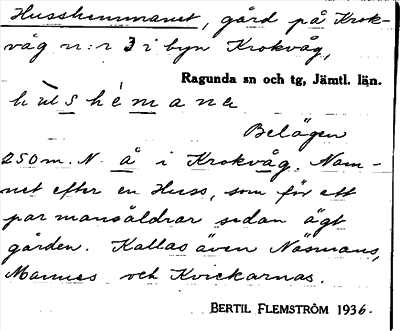 Husshemmanet, gård på Krok-
våg n:r 3 i byn Krokvåg,
Ragunda sn och tg, Jämtl. län.
hùshèmana
Belägen
250 m. N å i Krokvåg. Nam-
net efter en Huss, som för ett
par mansåldrar sedan ägt
gården. Kallas även Näsmans,
Mannes och Kvickarnas.
BERTIL FLEMSTRÖM 1936.